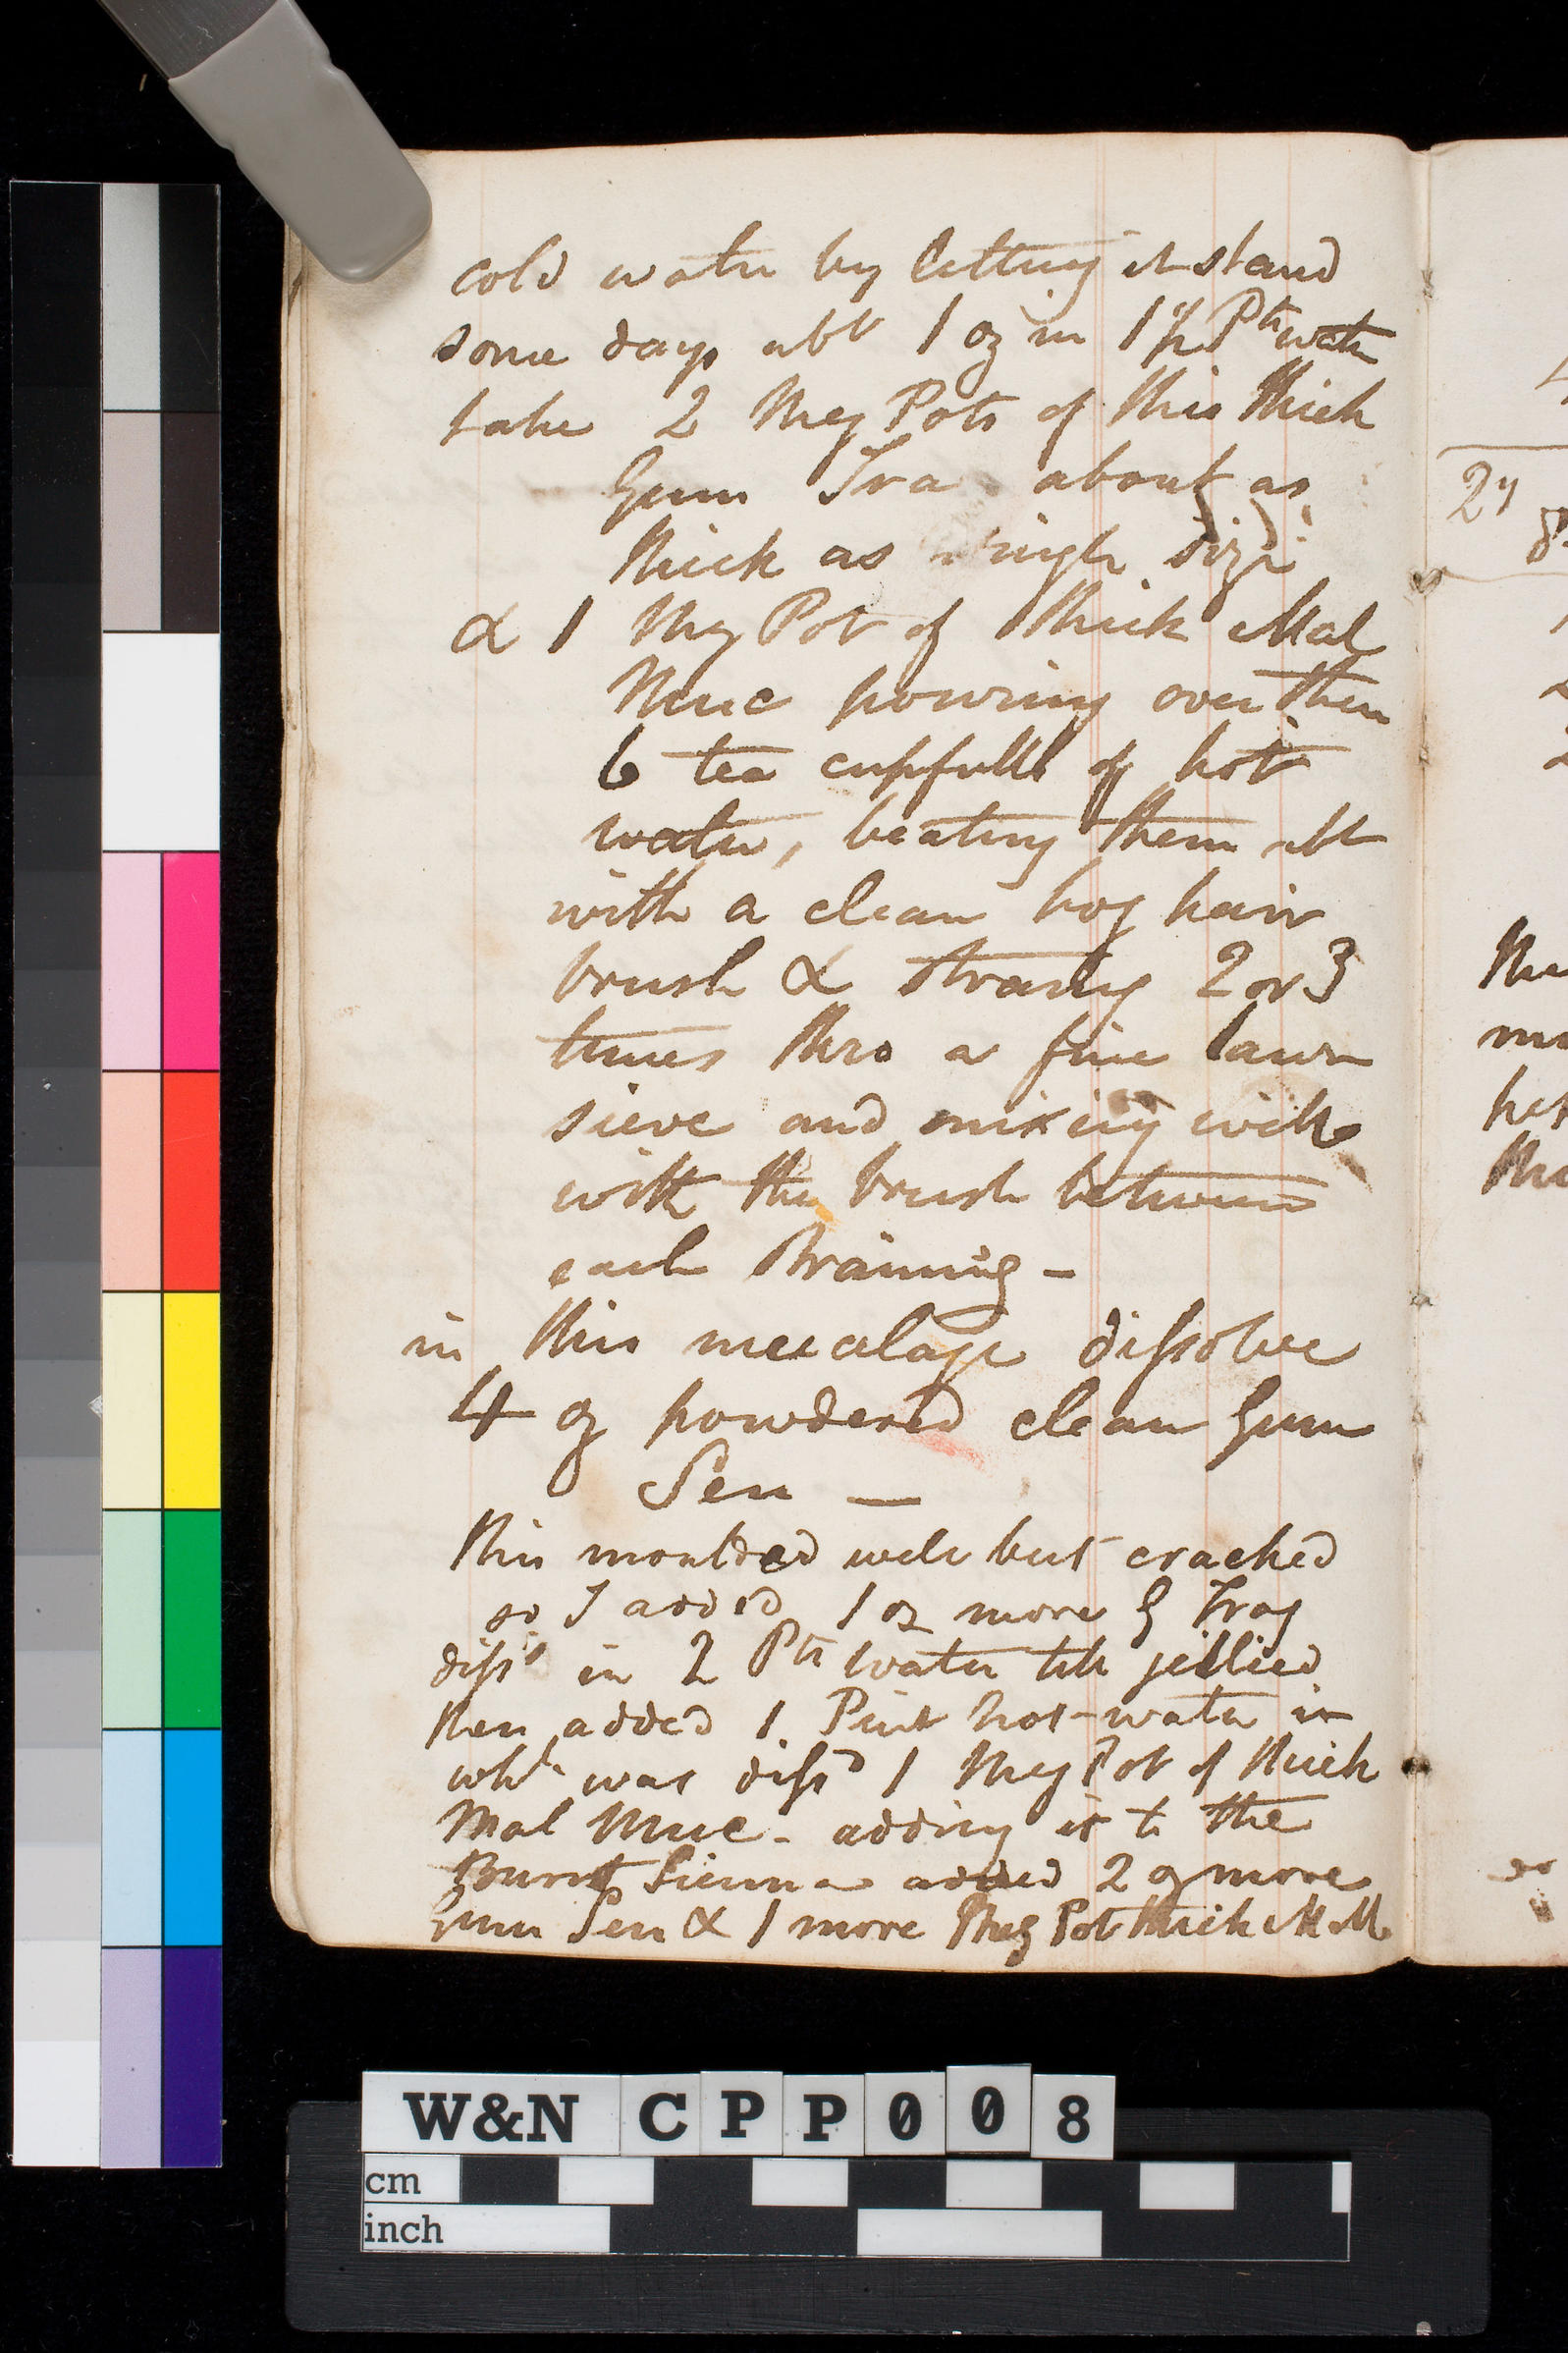 cold water by letting it stand
some days abt 1 oz in 1½ Pts water
take 2 Meg Pots of this thick
Gum Tra about as
thick as single size
& 1 Meg Pot of thick Mal
Muc pouring over them
6 tea cupfulls of hot
water, beating them all
with a clean hog hair
brush & straing 2 or 3
times thro a fine lawn
sieve and mixing well
with the brush between
each straining -
in this mucalage dissolve
4 oz powdered clean Gum
Sen —
this moulded well but cracked
so I added 1 oz more G Trag
dissd in 2 Pts water till jellied
then added 1 Pint hot water in
whh was dissd 1 Meg Pot of thick
Mal Muc - adding it to the
Burnt Sienna added 2 oz more
Gum Sen & 1 more Meg Pot thick M M
2
the
W&N CPP008
cm
inch